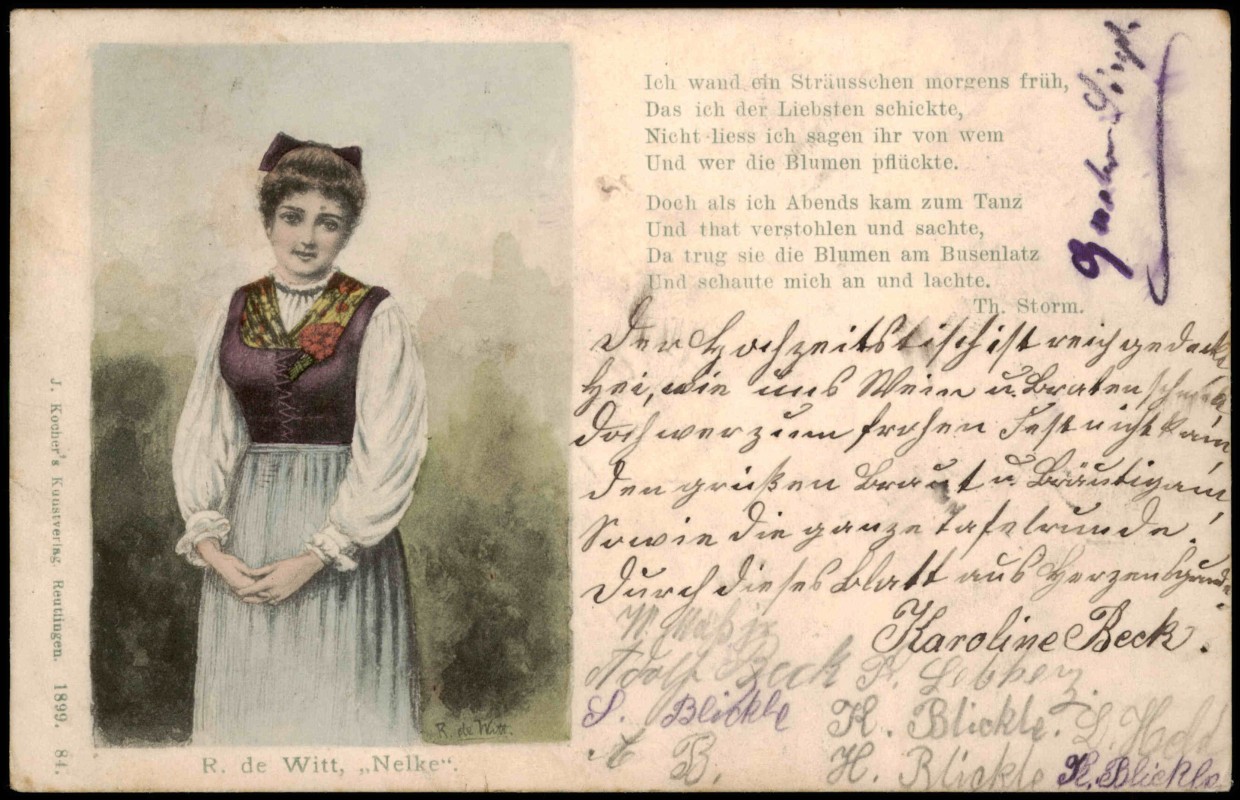 Ich wand ein Sträusschen morgens früh,
Das ich der Liebsten schickte,
Nicht liess ich sagen ihr von wem
Und wer die Blumen pflückte.
Doch als ich Abends kam zum Tanz
Und that verstohlen und sachte,
Da trug sie die Blumen am Busenlatz
Und schaute mich an und lachte.
Th. Storm.
Der Hochzeitstisch ist reich gedeckt
Hei, wie uns Wein u. Braten schmeckt
Doch wer zum frohen Fest nicht kam
den grüßen Braut u. Bräutigam,
Sowie die ganze Tafelrunde.
Durch dieses Blatt aus Herzensgrunde.
Karoline Beck.
Adolf Beck
S. Blickle K. Blickle. L. Hold
B. H. Blickle K. Blickle
R. de Witt.
R. de Witt, „Nelke“.
J. Kocher's Kunstverlag, Reutlingen. 1899. 84.